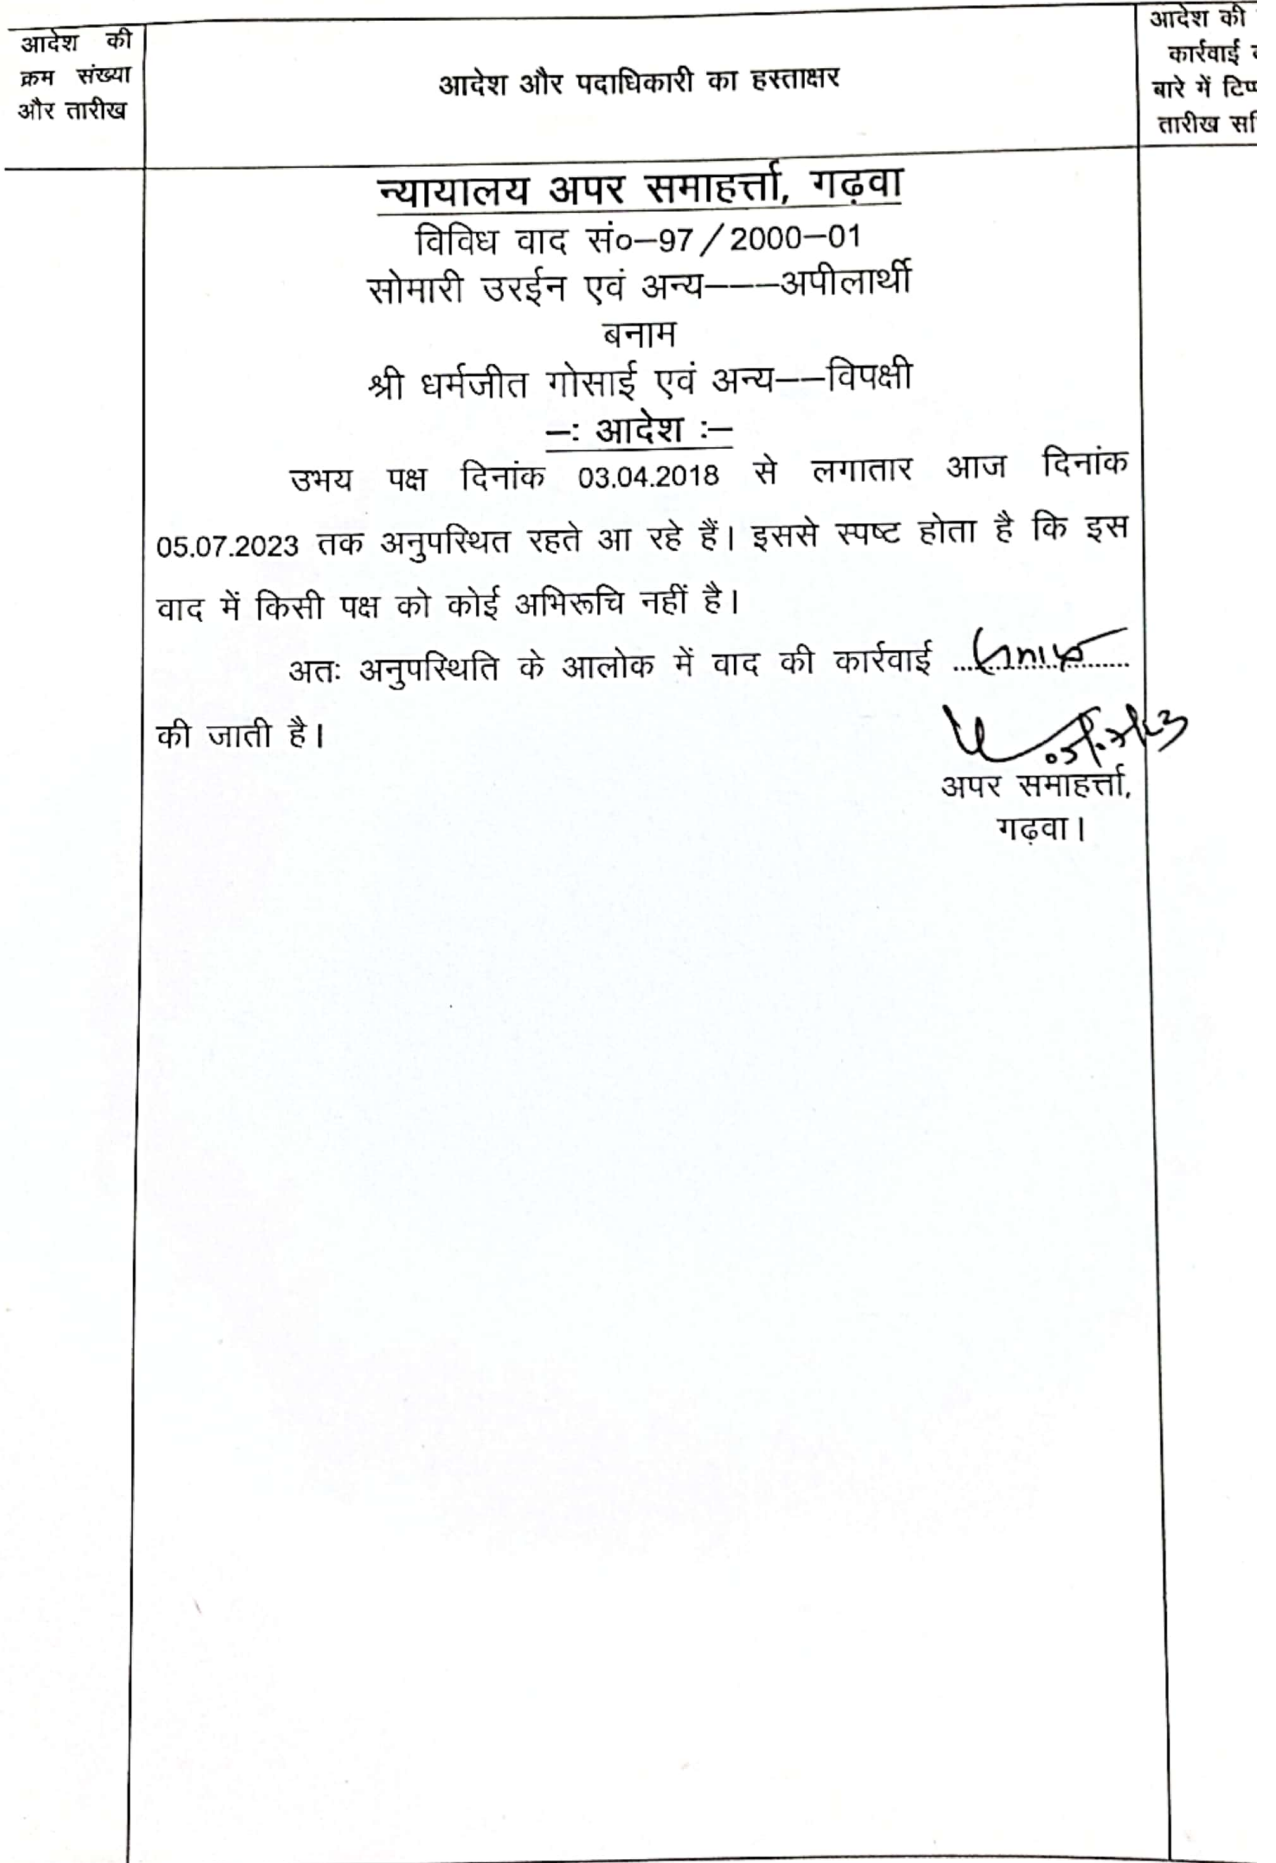 आदेश की
क्रम संख्या
और तारीख
आदेश और पदाधिकारी का हस्ताक्षर
आदेश की
कार्रवाई
बारे में
तारीख
न्यायालय अपर समाहर्त्ता, गढ़वा
विविध वाद सं०–97/2000–01
सोमारी उरईन एवं अन्य–––अपीलार्थी
बनाम
श्री धर्मजीत गोसाई एवं अन्य––विपक्षी
–: आदेश :–
उभय पक्ष दिनांक 03.04.2018 से लगातार आज दिनांक
05.07.2023 तक अनुपस्थित रहते आ रहे हैं। इससे स्पष्ट होता है कि इस
वाद में किसी पक्ष को कोई अभिरूचि नहीं है।
अतः अनुपस्थिति के आलोक में वाद की कार्रवाई
की जाती है।
अपर समाहर्त्ता,
गढ़वा।